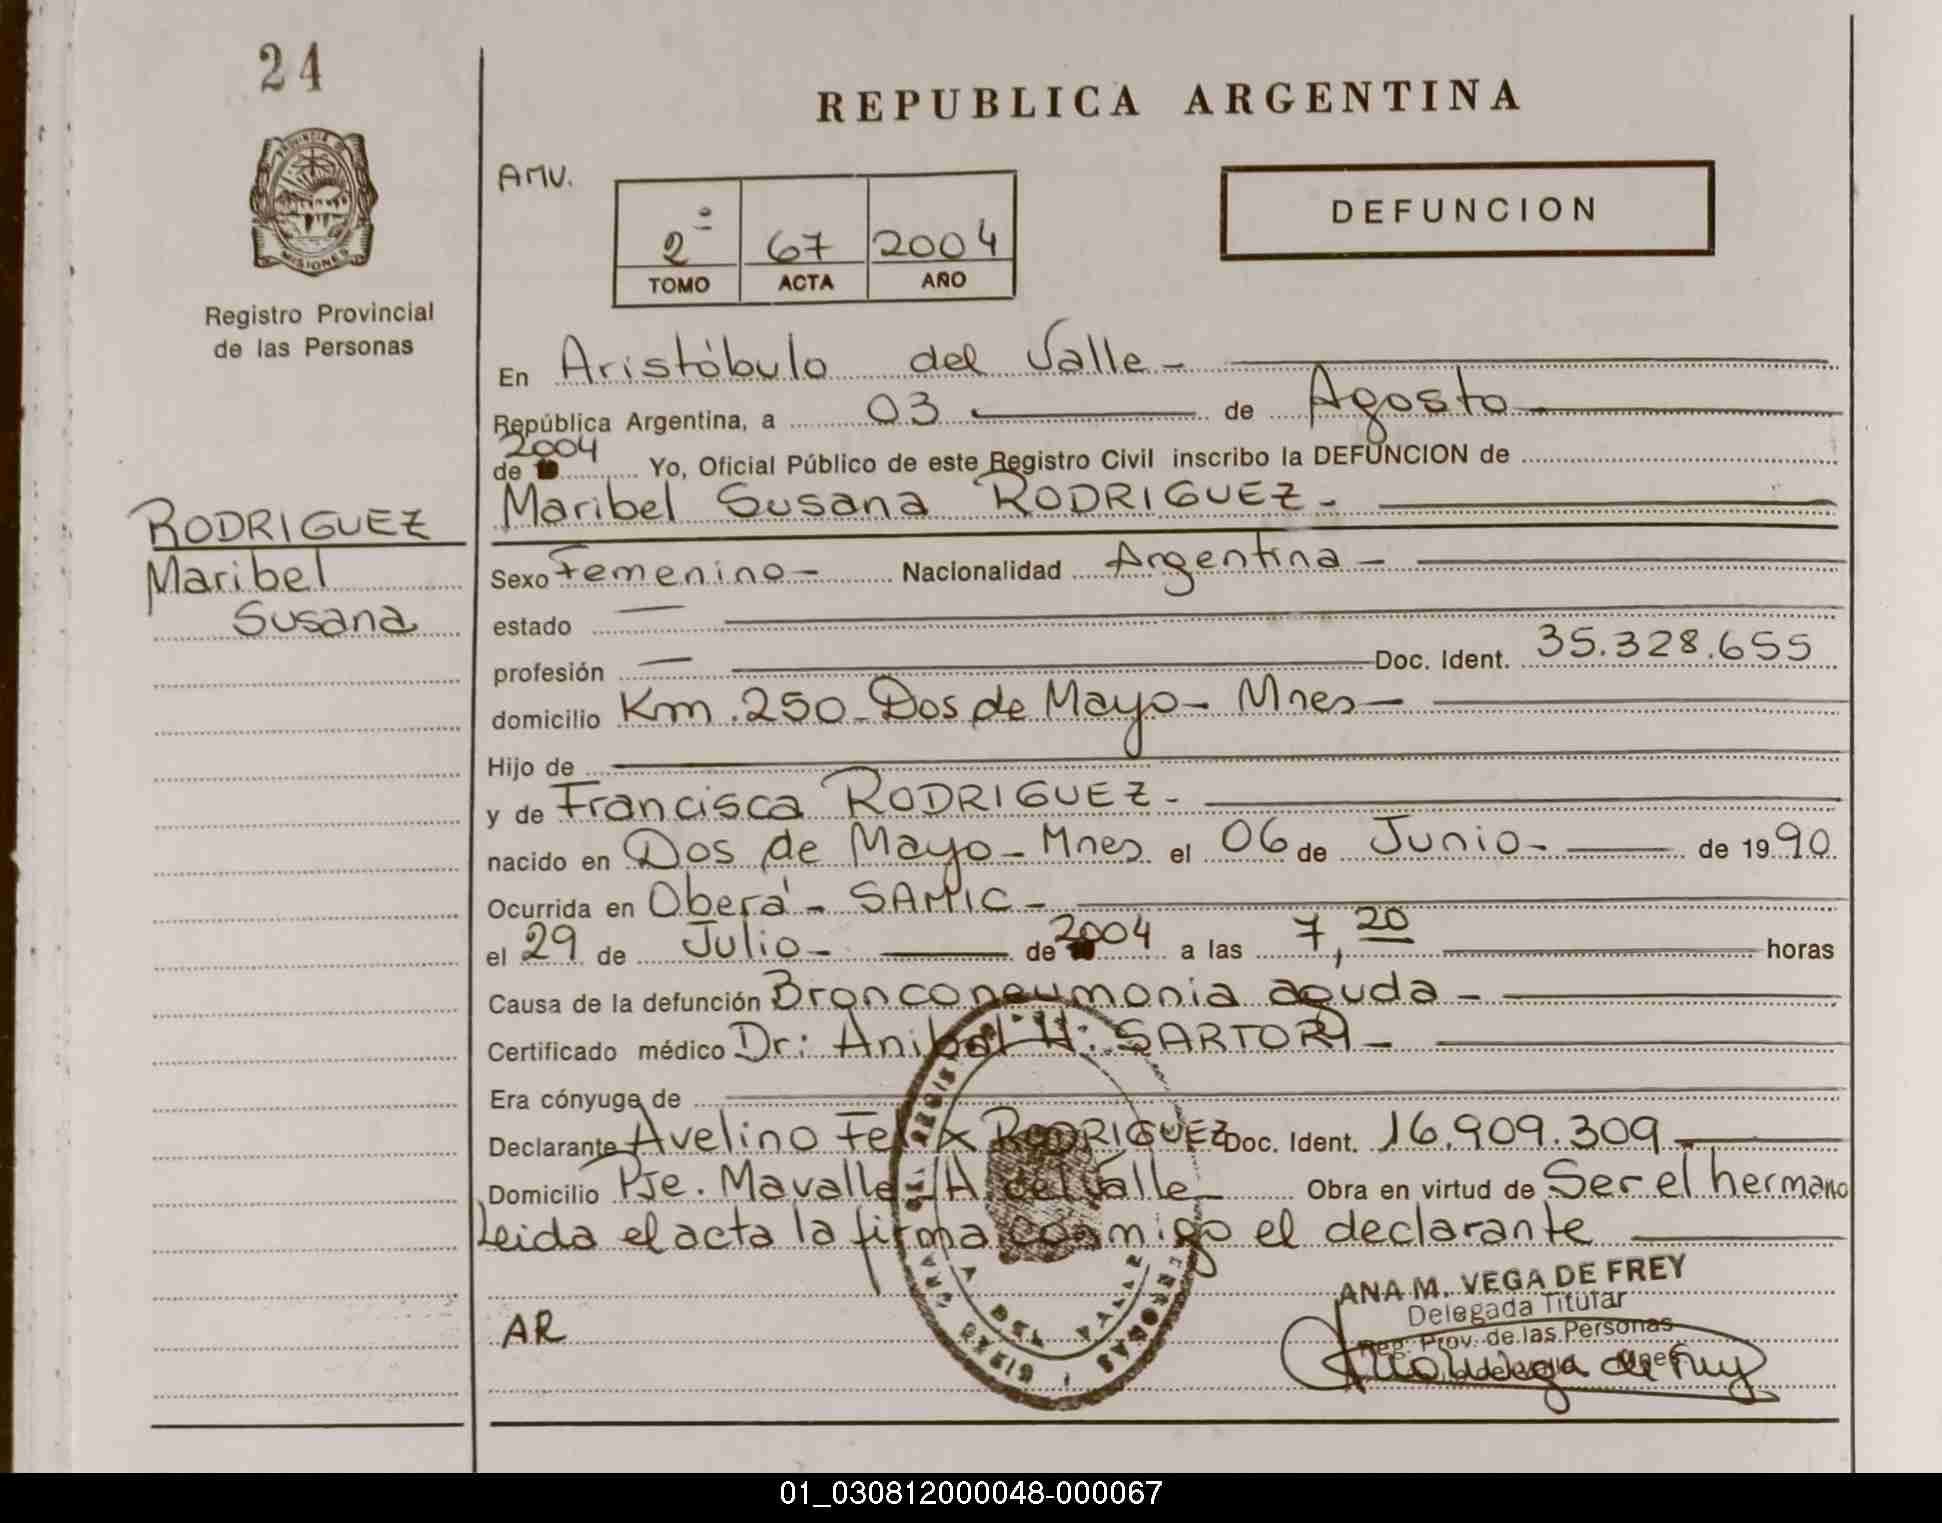 24
REPUBLICA ARGENTINA
PROVINCIA DE
MISIONES
Registro Provincial
de las Personas
AMV.
2º 67 2004
TOMO ACTA AÑO
DEFUNCION
RODRIGUEZ
Maribel
Susana
En Aristóbulo del Valle -
República Argentina, a 03 de Agosto -
de 2004 Yo, Oficial Público de este Registro Civil inscribo la DEFUNCION de
Maribel Susana RODRIGUEZ -
Sexo Femenino - Nacionalidad Argentina -
estado —
profesión — Doc. Ident. 35.328.655
domicilio Km. 250 - Dos de Mayo - Mnes -
Hijo de
y de Francisca RODRIGUEZ -
nacido en Dos de Mayo - Mnes el 06 de Junio - de 1990
Ocurrida en Oberá - SAMIC -
el 29 de Julio - de 2004 a las 7,20 horas
Causa de la defunción Bronconeumonia aguda -
Certificado médico Dr: Anibal H: SARTORI -
Era cónyuge de
Declarante Avelino Felix RODRIGUEZ Doc. Ident. 16.909.309 -
Domicilio Pje. Mavalle - A. del Valle - Obra en virtud de Ser el hermano
Leida el acta la firma conmigo el declarante
AR
ANA M. VEGA DE FREY
Delegada Titular
Reg. Prov. de las Personas
01_030812000048-000067